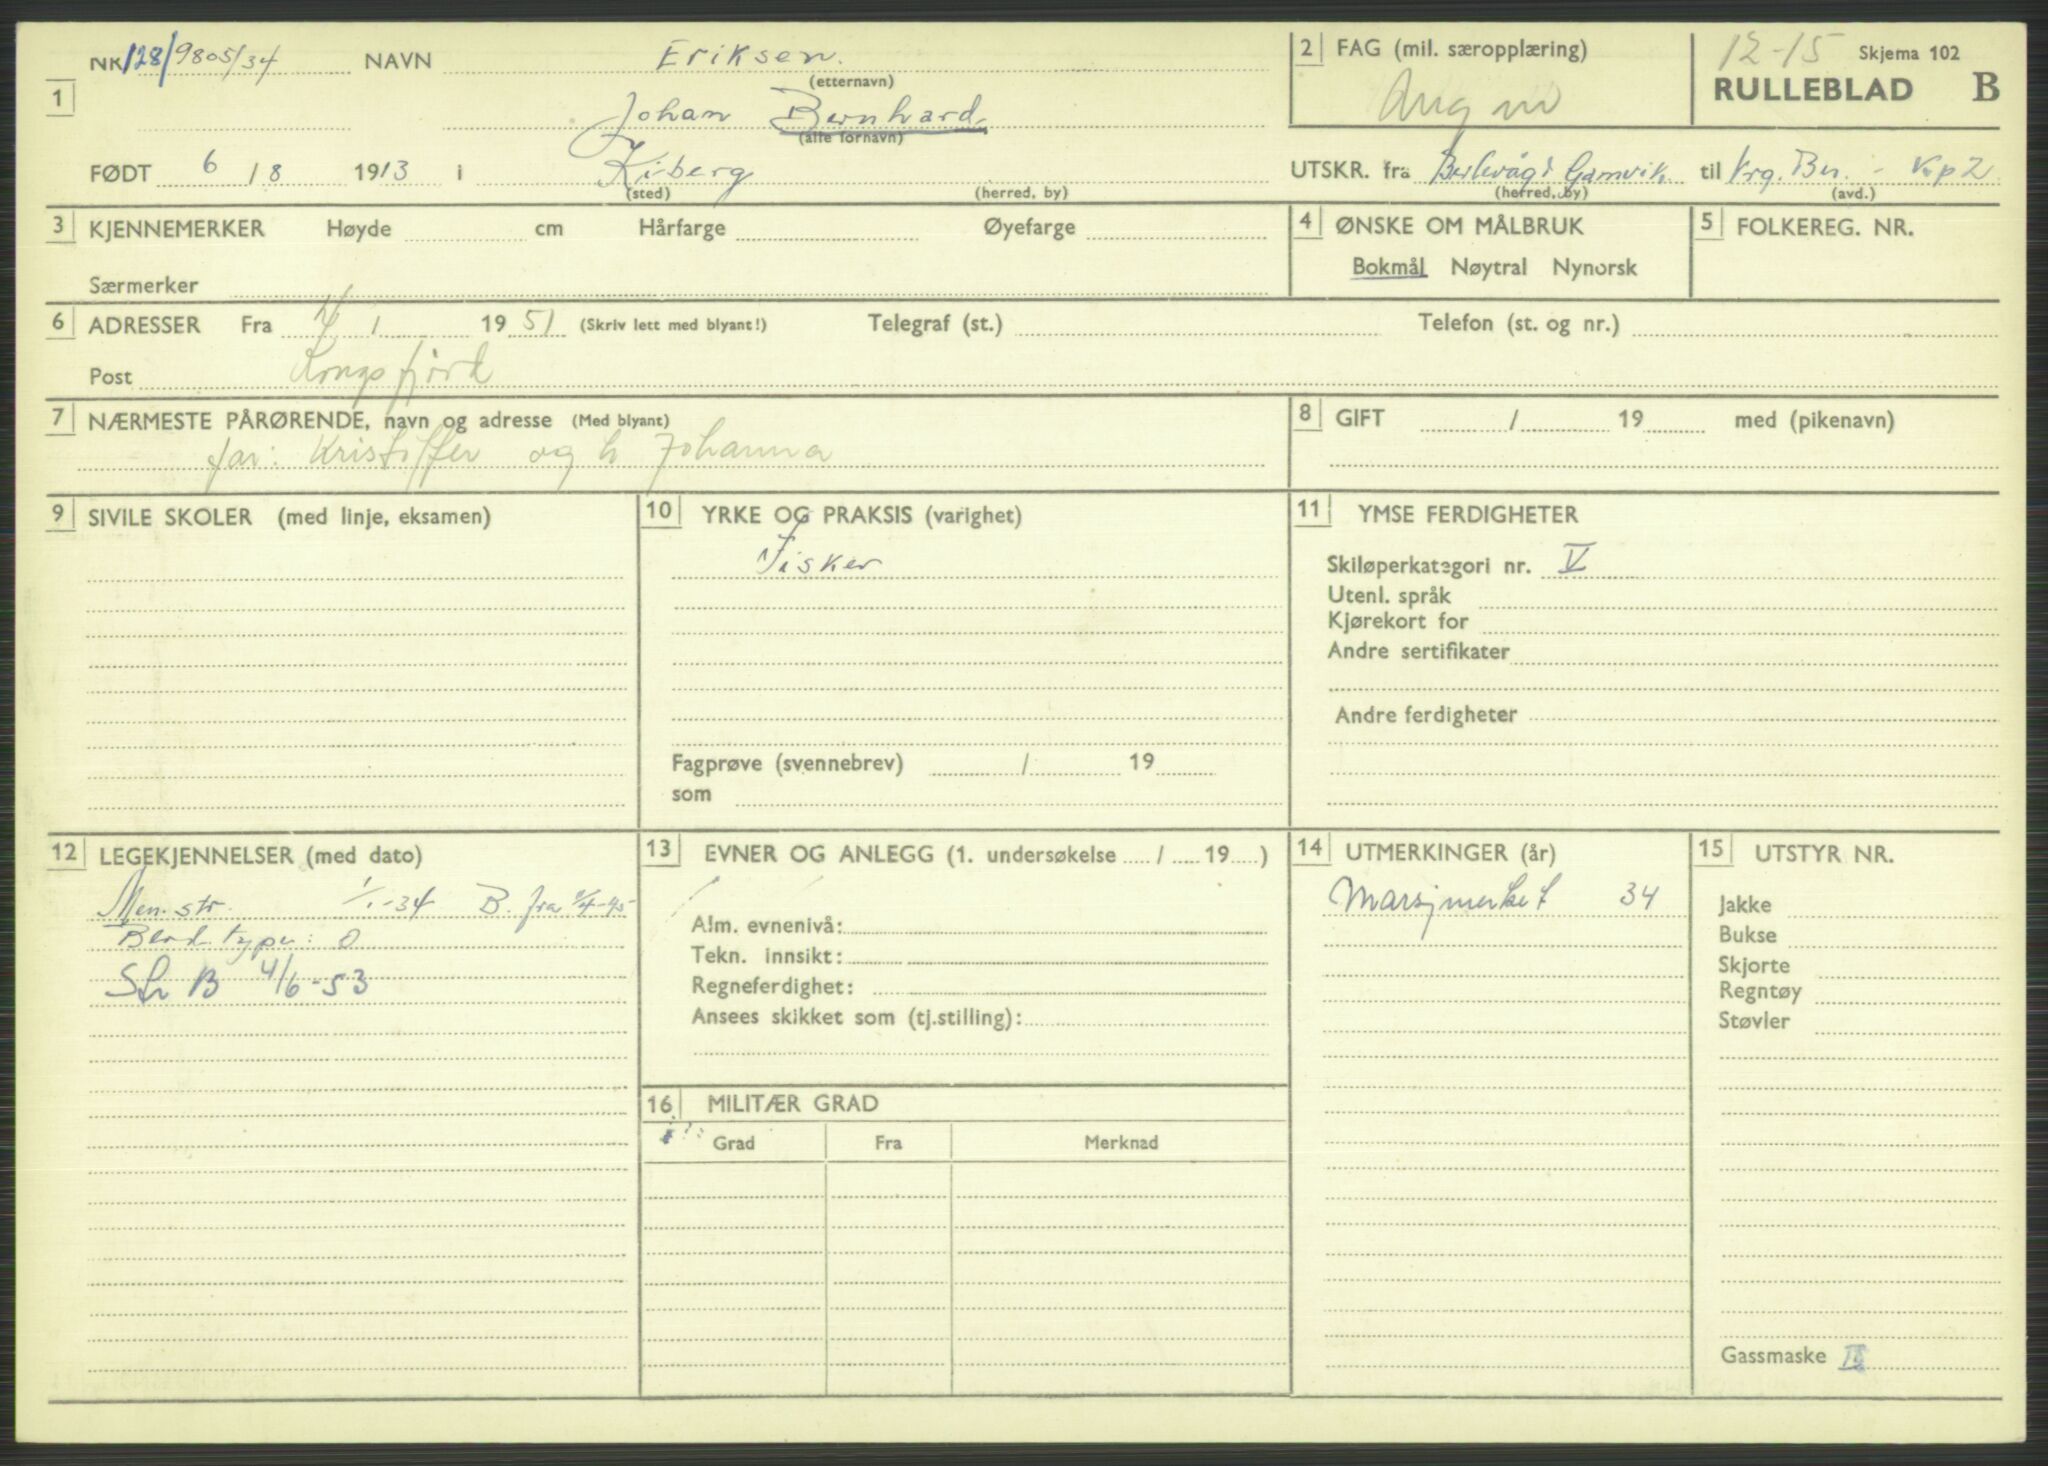 NK 128/9805/34 NAVN Eriksen.
(etternavn)
1
Johan Bernhard
(alle fornavn)
FØDT 6 / 8 1913 i Kiberg
(sted) (herred, by)
2 FAG (mil. særopplæring)
12-15 Skjema 102
RULLEBLAD B
UTSKR. fra Berlevåg Gamvik til Vrg. Bn. - Kp 2
(herred, by) (avd.)
3 KJENNEMERKER Høyde cm Hårfarge Øyefarge
Særmerker
4 ØNSKE OM MÅLBRUK
Bokmål Nøytral Nynorsk
5 FOLKEREG. NR.
6 ADRESSER Fra / 1 1951 (Skriv lett med blyant!) Telegraf (st.) Telefon (st. og nr.)
Post Kongsfjord
7 NÆRMESTE PÅRØRENDE, navn og adresse (Med blyant)
far: Kristoffer og h Johanna
8 GIFT / 19 med (pikenavn)
9 SIVILE SKOLER (med linje, eksamen)
10 YRKE OG PRAKSIS (varighet)
Fisker
Fagprøve (svennebrev) / 19
som
11 YMSE FERDIGHETER
Skiløperkategori nr. V
Utenl. språk
Kjørekort for
Andre sertifikater
Andre ferdigheter
12 LEGEKJENNELSER (med dato)
Men. str. 1/1-34 B. fra 1/4-45
Blodtype: O
Str B 4/6-53
13 EVNER OG ANLEGG (1. undersøkelse / 19 )
Alm. evnenivå:
Tekn. innsikt:
Regneferdighet:
Ansees skikket som (tj.stilling):
14 UTMERKINGER (år)
Marsjmerket 34
15 UTSTYR NR.
Jakke
Bukse
Skjorte
Regntøy
Støvler
Gassmaske
16 MILITÆR GRAD
Grad Fra Merknad